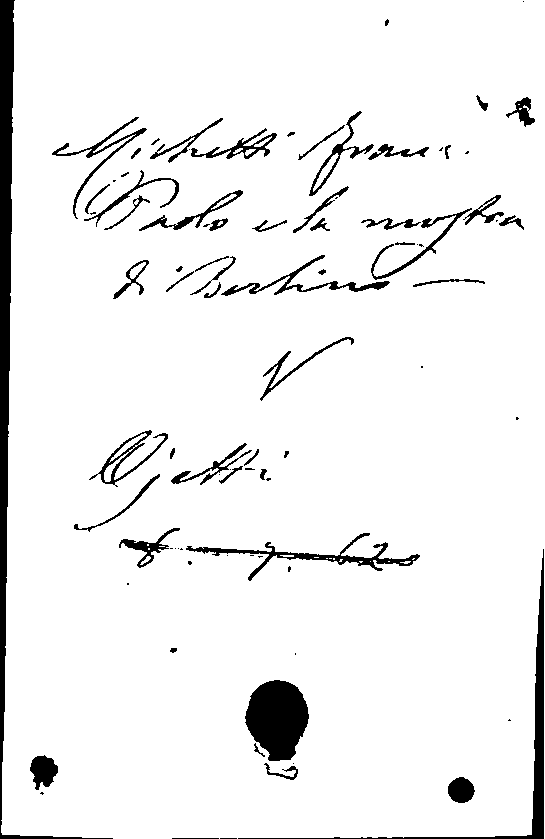 Michetti Franc.
Paolo e la mostra
di Berlino —
V
Ojetti
6. 7. 62